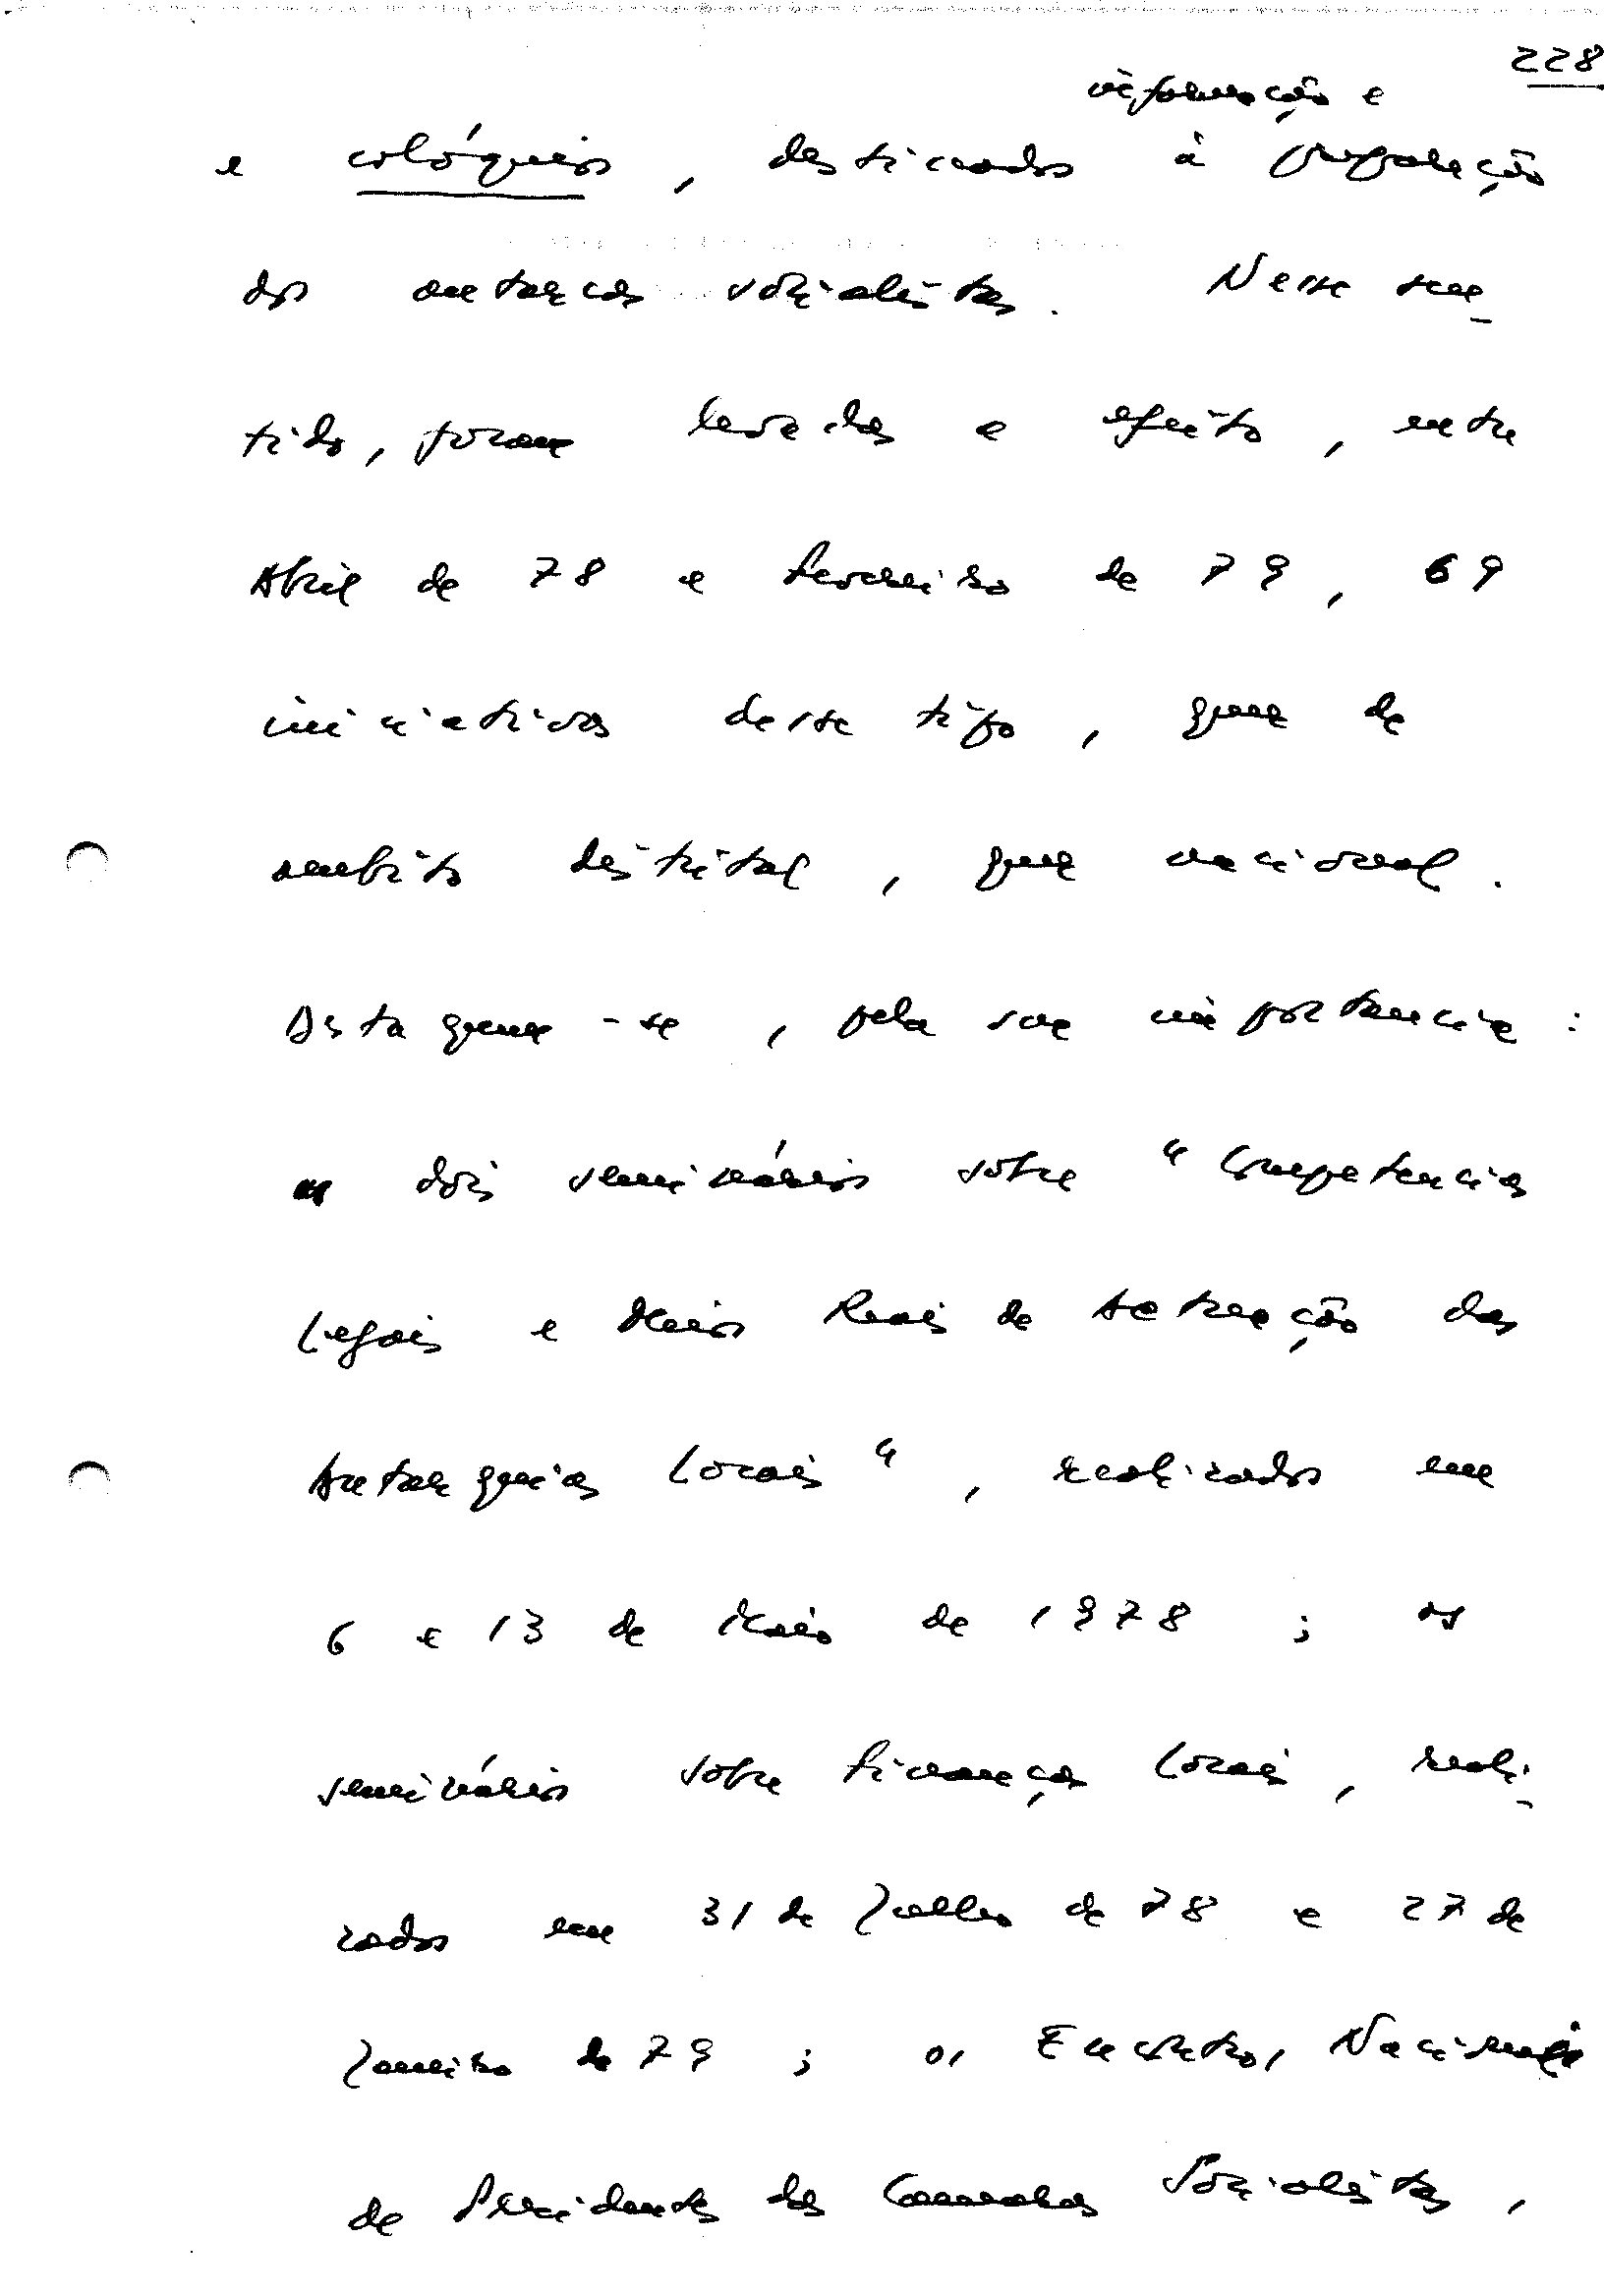 228
informação e
e colóquios, destinados à preparação
dos autarcas socialistas. Nesse sen-
tido, foram levadas a efeito, entre
Abril de 78 e Fevereiro de 79, 69
iniciativas desse tipo, quer de
ambito distrital, quer nacional.
Destaquem-se, pela sua importancia:
dois seminários sobre "Competencias
Legais e Meios Reais de Actuação das
Autarquias Locais", realizados em
6 e 13 de Maio de 1978; os
seminários sobre Finanças Locais, reali-
zados em 31 de Julho de 78 e 27 de
Janeiro de 79; os Encontros Nacionais
de Presidentes das Camaras Socialistas,